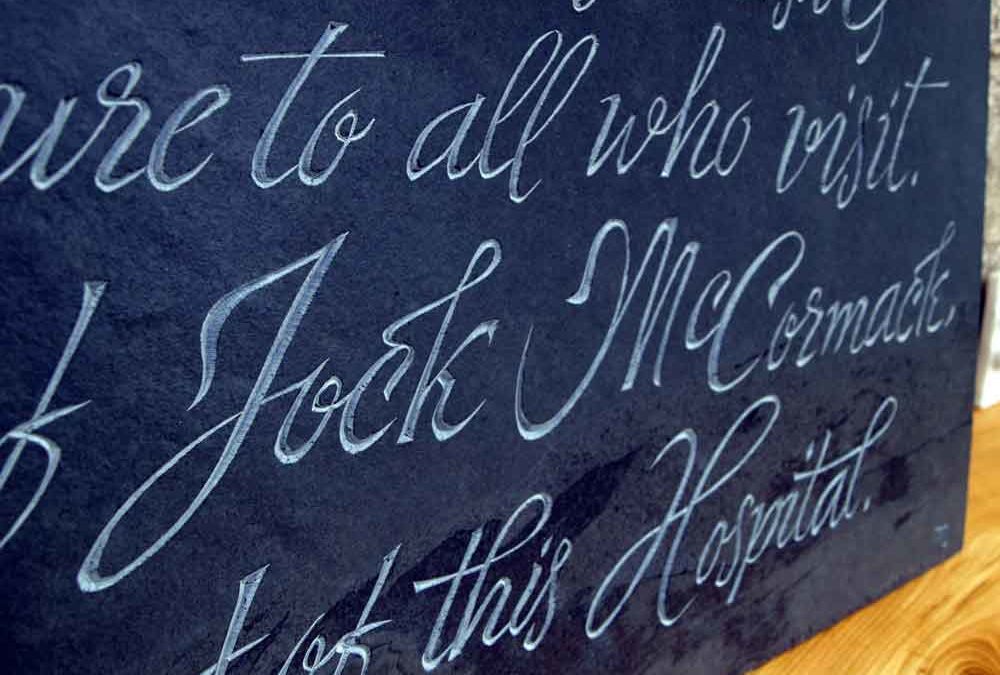 to all who visit.
of Jock McCormack,
of this Hospital.